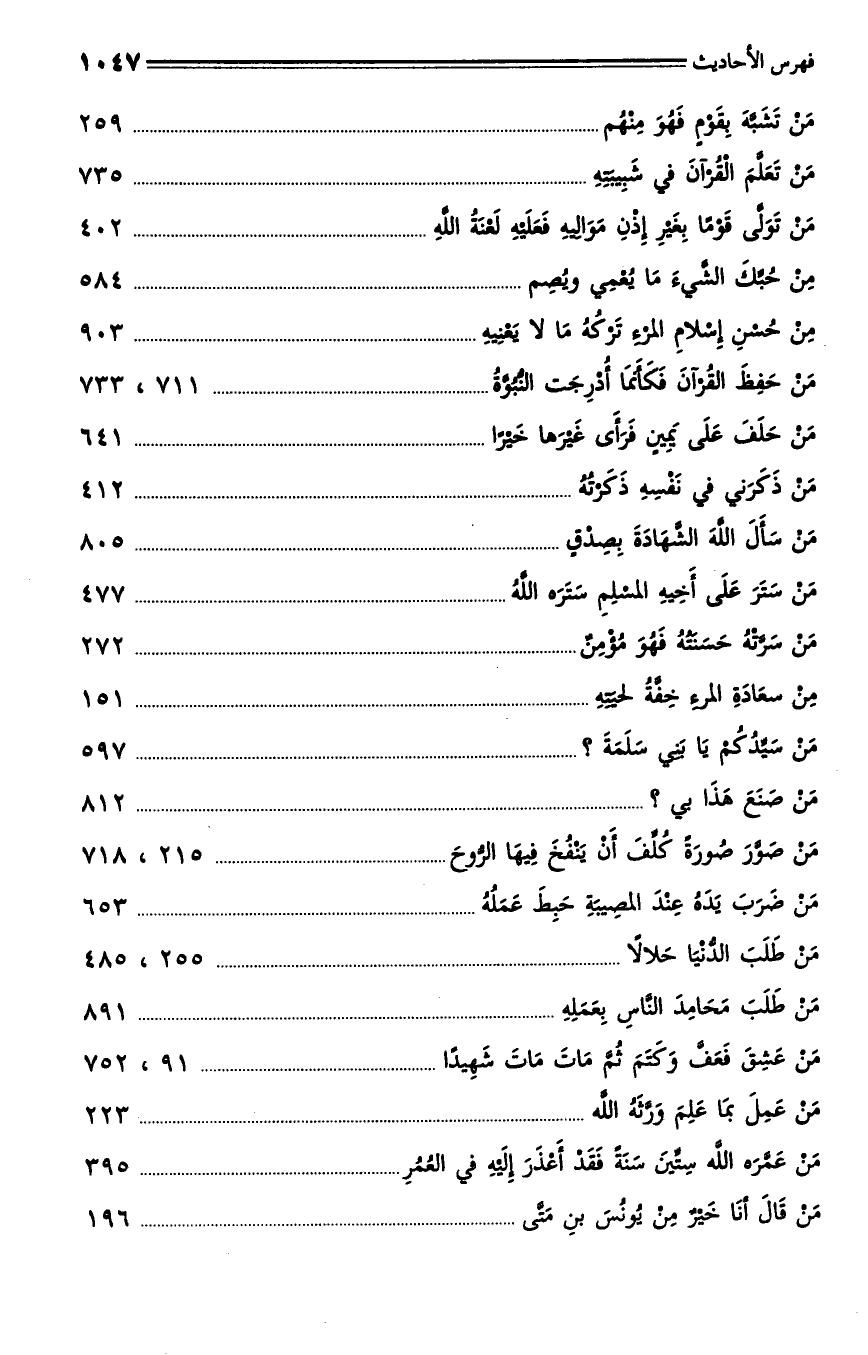 فهرس الأحاديث ١٠٤٧
مَنْ تَشَبَّهَ بِقَوْمٍ فَهُوَ مِنْهُم ........ ٢٥٩
مَنْ تَعَلَّمَ الْقُرْآنَ في شَبِيبَتِهِ ........ ٧٣٥
مَنْ تَوَلَّى قَوْمًا بِغَيْرِ إِذْنِ مَوَالِيهِ فَعَلَيْهِ لَعْنَةُ اللَّهِ ........ ٤٠٢
مِنْ حُبِّكَ الشَّيءَ مَا يُعْمِي ويُصِم ........ ٥٨٤
مِنْ حُسْنِ إِسْلامِ المَرْءِ تَرْكُهُ مَا لا يَعْنِيهِ ........ ٩٠٣
مَنْ حَفِظَ القُرْآنَ فَكَأَنمَّا أُدْرِجَت النُّبُوَّةُ ........ ٧١١ ، ٧٣٣
مَنْ حَلَفَ عَلَى يَمِينٍ فَرَأَى غَيْرَها خَيْرًا ........ ٦٤١
مَنْ ذَكَرَني في نَفْسِهِ ذَكَرْتُهُ ........ ٤١٢
مَنْ سَأَلَ اللَّهَ الشَّهَادَةَ بِصِدْقٍ ........ ٨٠٥
مَنْ سَتَرَ عَلَى أَخِيهِ المسْلِمِ سَتَرَه اللَّهُ ........ ٤٧٧
مَنْ سَرَّتْهُ حَسَنَتُهُ فَهُوَ مُؤْمِنٌ ........ ٢٧٢
مِنْ سعَادَةِ المرءِ خِفَّةُ لحيَتِهِ ........ ١٥١
مَنْ سَيِّدُكُمْ يَا بَنِي سَلَمَةَ ؟ ........ ٥٩٧
مَنْ صَنَعَ هَذَا بي ؟ ........ ٨١٢
مَنْ صَوَّرَ صُورَةً كُلِّفَ أَنْ يَنْفُخَ فِيهَا الرُّوحَ ........ ٢١٥ ، ٧١٨
مَنْ ضَرَبَ يَدَهُ عِنْدَ المصِيبَةِ حَبِطَ عَمَلُهُ ........ ٦٥٣
مَنْ طَلَبَ الدُّنْيَا حَلالًا ........ ٢٥٥ ، ٤٨٥
مَنْ طَلَبَ مَحَامِدَ النَّاسِ بِعَمَلِهِ ........ ٨٩١
مَنْ عَشِقَ فَعَفَّ وَكَتَمَ ثُمَّ مَاتَ مَاتَ شَهِيدًا ........ ٩١ ، ٧٥٢
مَنْ عَمِلَ بمَا عَلِمَ وَرَّثَهُ اللَّه ........ ٢٢٣
مَنْ عَمَّرَه اللَّه سِتِّينَ سَنَةً فَقَدْ أَعْذَرَ إِلَيْهِ في العُمُرِ ........ ٣٩٥
مَنْ قَالَ أنَا خَيْرٌ مِنْ يُونُسَ بنِ مَتَّى ........ ١٩٦